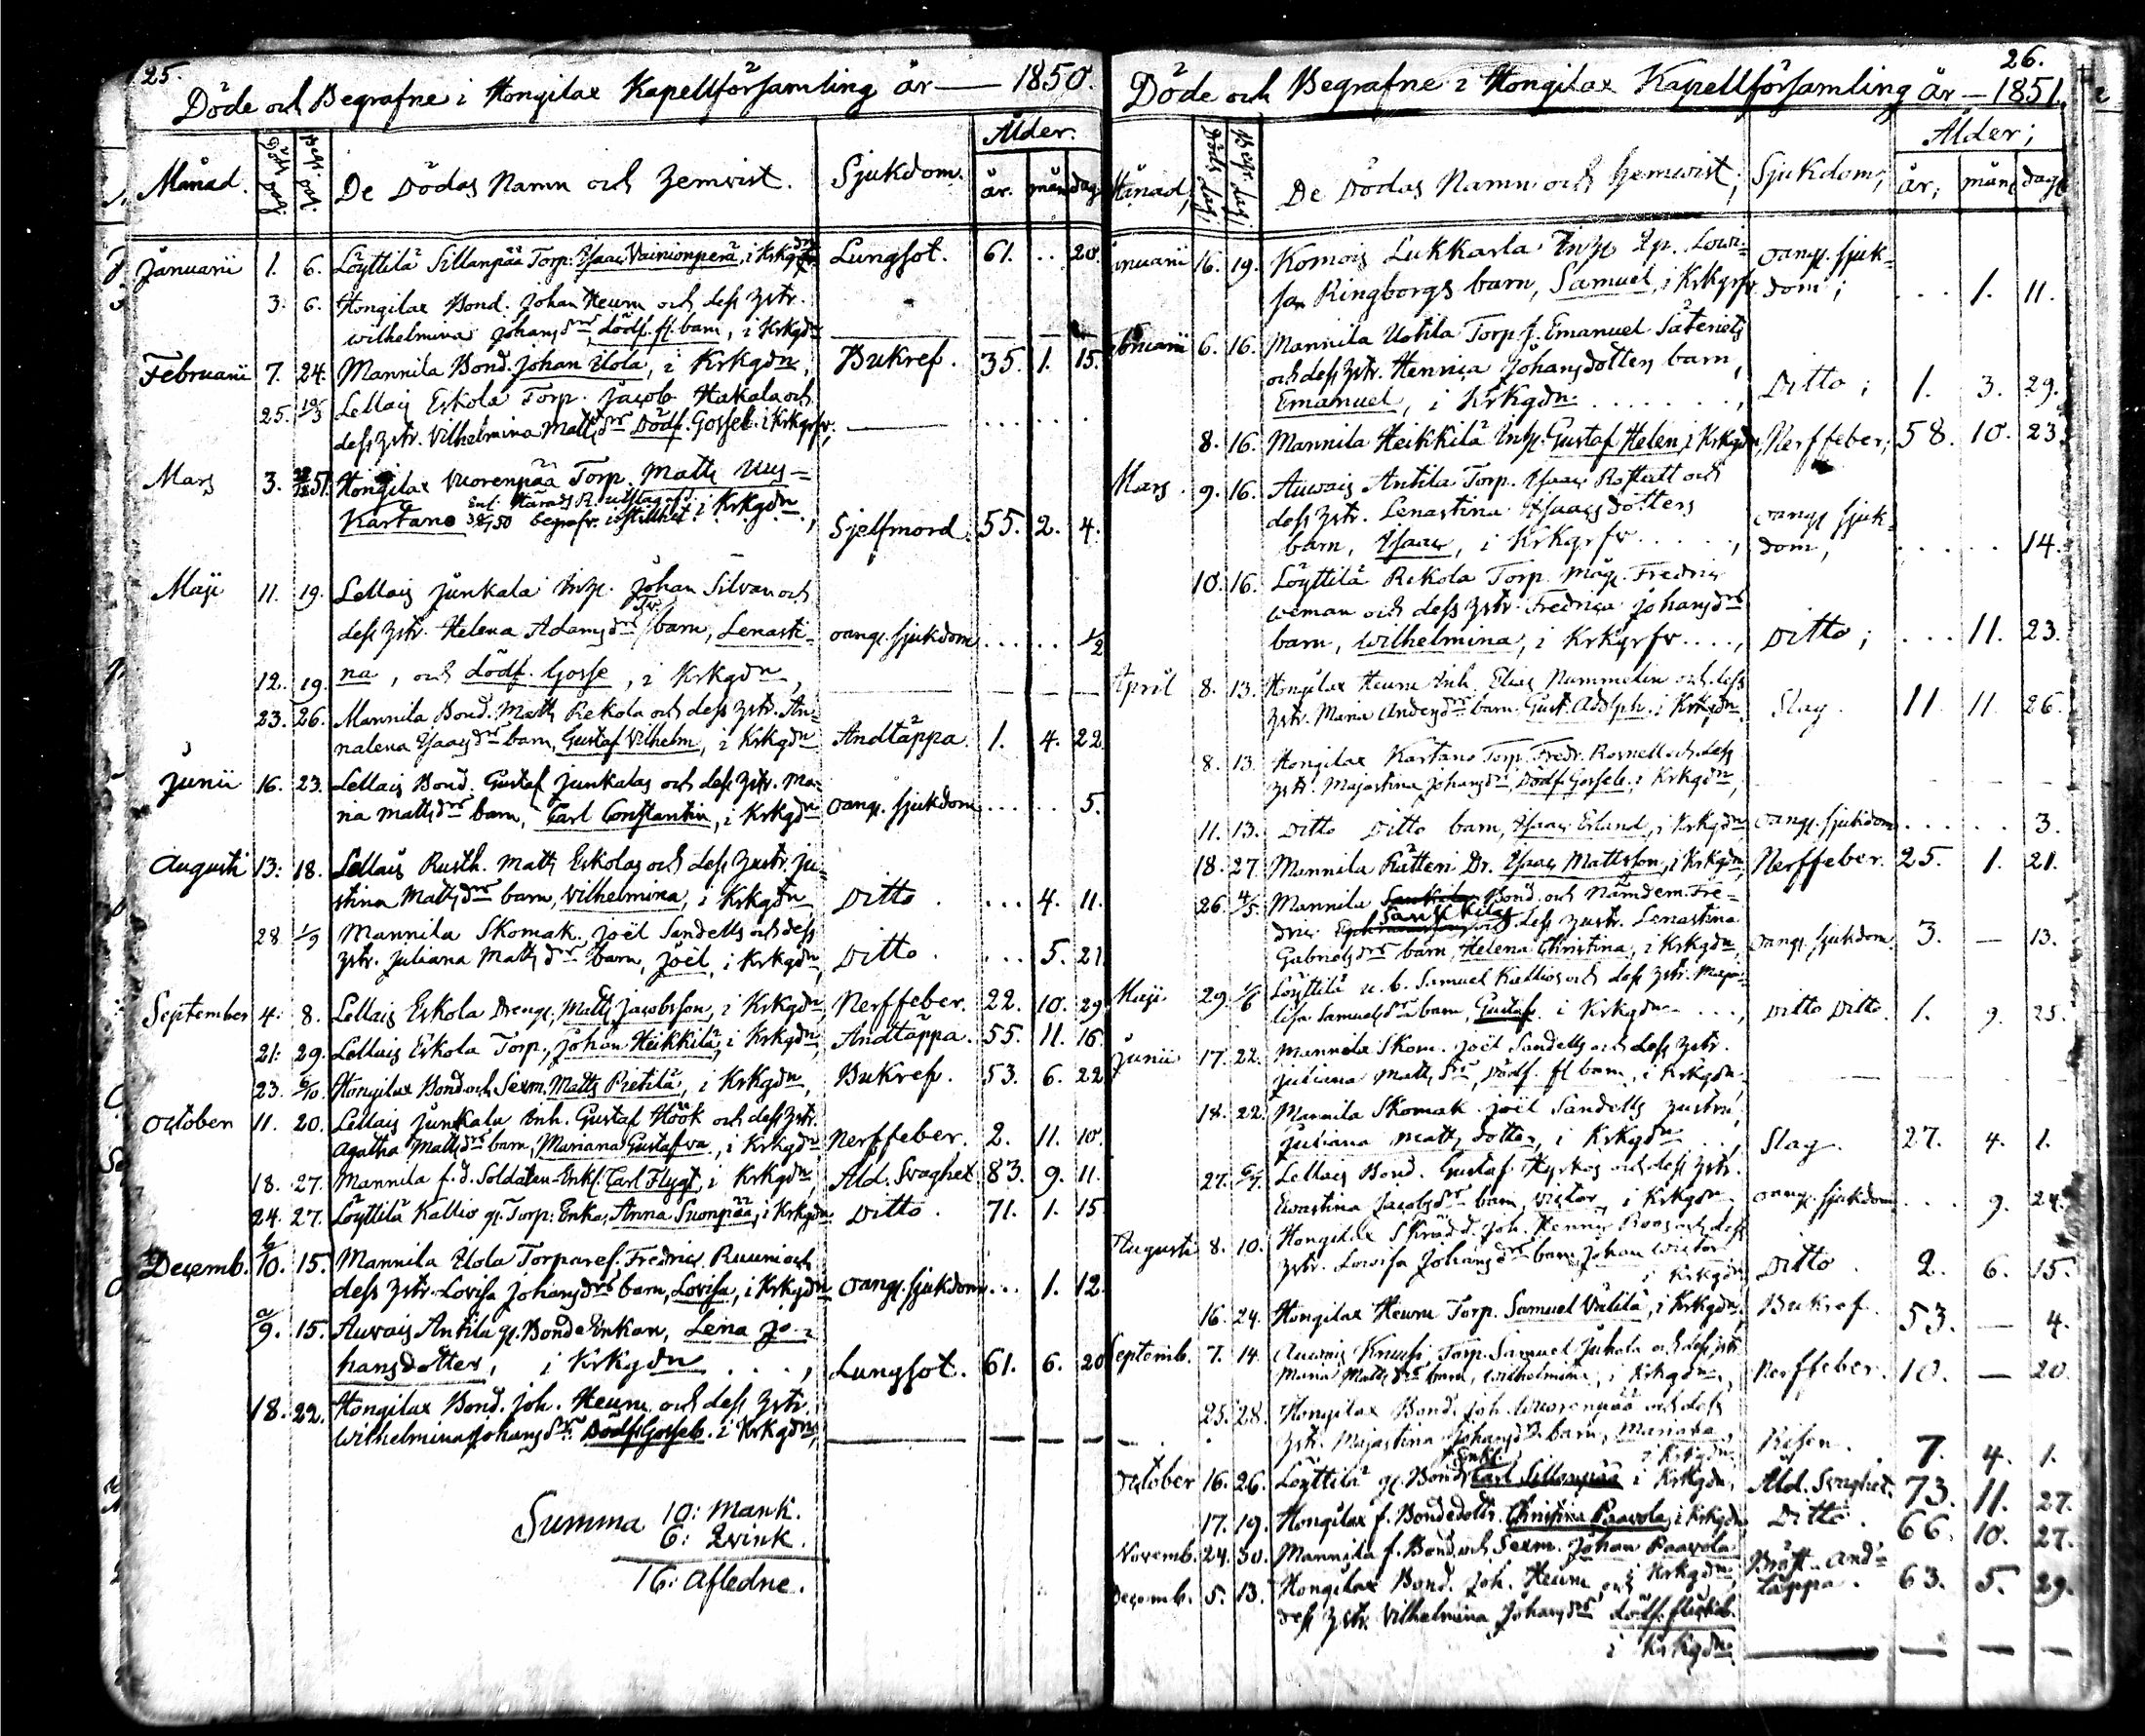 25.
Döde och Begrafne i Hongilax Kapellförsamling år — 1850.
Månad. Döds dag. Begr. dag. De Dödas Namn och Hemvist. Sjukdom. Ålder. år. mån. dag.
Januarii 1. 6. Löyttilä Sillanpää Torp. Isaac Vainionperä, i Krkgdn Lungsot. 61. .. 20.
3. 6. Hongilax Bond. Johan Heurn och dess Hstr.
Wilhelmina Johansdrs dödf. fl. barn, i Krkgdn — — —
Februarii 7. 24. Mannila Bond. Johan Elola, i Krkgdn, Bukref. 35. 1. 15.
25. 10/3 Lellais Eskola Torp. Jacob Hakala och
dess Hstr. Vilhelmina Mattsdrs Dödf. Gosseb. i Krkgrfv; — ....
Mars 3. 51. Hongilax Vuorenpää Torp. Matts Uus=
Kartano Enl. Härads R. utslag af 50 begrafv. i stillhet i Krkgdn, Sjelfmord. 55. 2. 4.
Maji 11. 19. Lellais Junkala Inh. Johan Silvan och
dess Hstr. Helena Adamsdrs Tv. barn, Lenasti= oang. sjukdom .... 1/2
12. 19. na, och dödf. Gosse, i Krkgdn, — — —
23. 26. Mannila Bond. Matts Rekola och dess Hstr. An=
nalena Isaacsdrs barn, Gustaf Vilhelm, i Krkgdn Andtäppa. 1. 4. 22.
Junii 16. 23. Lellais Bond. Gustaf Junkalas och dess Hstr. Ma=
ria Mattsdrs barn, Carl Constantin, i Krkgdn oang. sjukdom .... 5.
Augusti 13. 18. Lellais Rusth. Matts Eskolas och dess Hustr. Ju=
stina Mattsdrs barn, Vilhelmina, i Krkgdn Ditto. ... 4. 11.
28. 1/9 Mannila Skomak. Joël Sandells och dess
Hstr. Juliana Mattsdrs barn, Joël, i Krkgdn, Ditto. ... 5. 21.
September 4. 8. Lellais Eskola Dreng, Matts Jacobsson, i Krkgdn Nerffeber. 22. 10. 29.
21. 29. Lellais Eskola Torp., Johan Heikkilä, i Krkgdn, Andtäppa. 55. 11. 16.
23. 6/10 Hongilax Bond och Sexm. Matts Pietilä, i Krkgdn, Bukref. 53. 6. 22.
October 11. 20. Lellais Junkala Inh. Gustaf Höök och dess Hstr.
Agatha Mattsdrs barn, Mariana Gustafva, i Krkgdn Nerffeber. 2. 11. 10.
18. 27. Mannila f.d. Soldaten-Enkl. Carl Flygt, i Krkgdn, Ald. Svaghet 83. 9. 11.
24. 27. Löyttilä Kallio gl. Torp. Enka, Anna Suonpää, i Krkgdn Ditto. 71. 1. 15.
Decemb. b/10. 15. Mannila Elola Torparef. Fredric Ruuni och
dess Hstr. Lovisa Johansdrs barn, Lovisa, i Krkgdn oang. sjukdom ... 1. 12.
a/9. 15. Auvais Antila gl. Bonde Enkan, Lena Jo=
hansdotter, i Krkgdn ..., Lungsot. 61. 6. 20
18. 22. Hongilax Bond. Joh. Heurn och dess Hstr.
Wilhelmina Johansdrs Dödf. Gosseb. i Krkgdn, — — —
Summa 10: Mank.
6: Qvink.
16: Afledne.
26.
Döde och Begrafne i Hongilax Kapellförsamling år — 1851.
Månad, Döds dag; Begr. dag; De Dödas Namn och hemvist; Sjukdom; Ålder; år; mån; dag;
Januarii 16. 19. Komois Lukkarla Inh. Qp. Lovi=
sa Ringborgs barn, Samuel, i Krkgrfv oang. sjuk=dom; ... 1. 11.
Februarii 6. 16. Mannila Uotila Torp. f. Emanuel Säteriets
och dess Hstr. Hennica Johansdotters barn,
Emanuel, i Krkgdn ......, Ditto; 1. 3. 29.
8. 16. Mannila Heikkilä Inh. Gustaf Helen, i Krkgdn, Nerffeber; 58. 10. 23.
Mars. 9. 16. Auvais Antila Torp. Isaac Rostedt och
dess Hstr. Lenastina Isaacsdotters
barn, Isaac, i Krkgrfv ....., oang. sjuk=dom, ..... 14.
10. 16. Löyttilä Rekola Torp. Måg. Fredric
Weman och dess Hstr. Fredrica Johansdrs
barn, Wilhelmina, i Krkgrfv ...., Ditto; ... 11. 23.
April 8. 13. Hongilax Heurn Inh. Elias Nummelin och dess
Hstr. Maria Andersdrs barn. Gust. Adolph. i Krkgdn. Slag. 11. 11. 26.
8. 13. Hongilax Kartano Torp. Fredr. Rosnell och dess
Hstr. Majastina Johansdrs, Dödf. Gosseb. i Krkgdn, — — —
11. 13. Ditto Ditto barn, Isaac Erland, i Krkgdn oang. sjukdom ..... 3.
18. 27. Mannila Rätteri Dr. Isaac Mattsson, i Krkgdn, Nerffeber. 25. 1. 21.
26. 4/5. Mannila Bond. och Nämdem. Fre=
dric Sankilas dess Hustr. Lenastina
Gabrielsdrs barn, Helena Christina, i Krkgdn, oang. sjukdom. 3. — 13.
Maji. 29. 1/6 Löyttilä u. b. Samuel Kallios och dess Hstr. Maja
lisa Samuelsdrs barn, Gustaf, i Krkgdn ..., Ditto Ditto. 1. 9. 25.
Junii 17. 22. Mannila Skom. Joël Sandells och dess Hstr.
Juliana Mattsdrs, Dödf. fl barn, i Krkgdn. — — —
18. 22. Mannila Skomak. Joël Sandells Hustru,
Juliana Mattsdotter, i Krkgdn .., Slag. 27. 4. 1.
27. 6/7. Lellais Bond. Gustaf Hyrkös och dess Hstr.
Evastina Jacobsdrs barn, Victor, i Krkgdn. oang. sjukdom ... 9. 24.
Augusti 8. 10. Hongilax Skrädd. Joh. Hennric Roos och dess
Hstr. Lovisa Johansdrs barn Johan Wictor
i Krkgdn Ditto. 2. 6. 15.
16. 24. Hongilax Heurn Torp. Samuel Välilä, i Krkgdn, Bukref. 53. — 4.
Septemb. 7. 14. Auvais Knuusi Torp. Samuel Juhola och dess Hstr
Maria Mattsdrs barn, Wilhelmina, i Krkgdn, Nerffeber. 10. — 20.
25. 28. Hongilax Bond. Joh. Wuorenpää och dess
Hstr. Majastina Johansdrs barn, Mariana,
i Krkgdn. Risen. 7. 4. 1.
October 16. 26. Löyttilä gl. Bond. Enkl. Carl Sillanpää i Krkgdn, Ald. Svaghet. 73. 11. 27.
17. 19. Hongilax f. Bondedottr. Christina Paavola, i Krkgdn Ditto. 66. 10. 27.
Novemb. 24. 30. Mannila f. Bond och Sexm. Johan Paavola
i Krkgdn, Bröst-And=täppa. 63. 5. 29.
Decemb. 5. 13. Hongilax Bond. Joh. Heurn och
dess Hstr. Vilhelmina Johansdrs dödf. flickab.
i Krkgdn. — — —